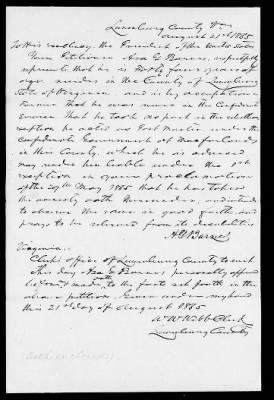 Lunenburg County Va.
August 21st 1865
To His excellency, the President of the United States
Your Petitioner Asa G Barnes, respectfully
represents that he is forty four years of
age resides in the County of Lunenburg
State of Virginia, and is by occupation a
Farmer that he was never in the Confederate
Service that he took no part in the rebellion
exception he acted as Post Master under the
Confederate Government at
in this County, which he is advised
may render him liable under the 1st
exception in your proclamation
of the 29th May 1865 that he has taken
the amnesty oath hereunder, and intends
to observe the same in good faith and
prays to be relieved from its disabilities
A G Barnes
Virginia..
Clerk's office of Lunenburg County to wit
This day Asa G Barnes personally appeared
before me & made oath to the facts set forth in the
above petition. Given under my hand
this 21st day of August 1865
Wm W Webb Clerk
Lunenburg County